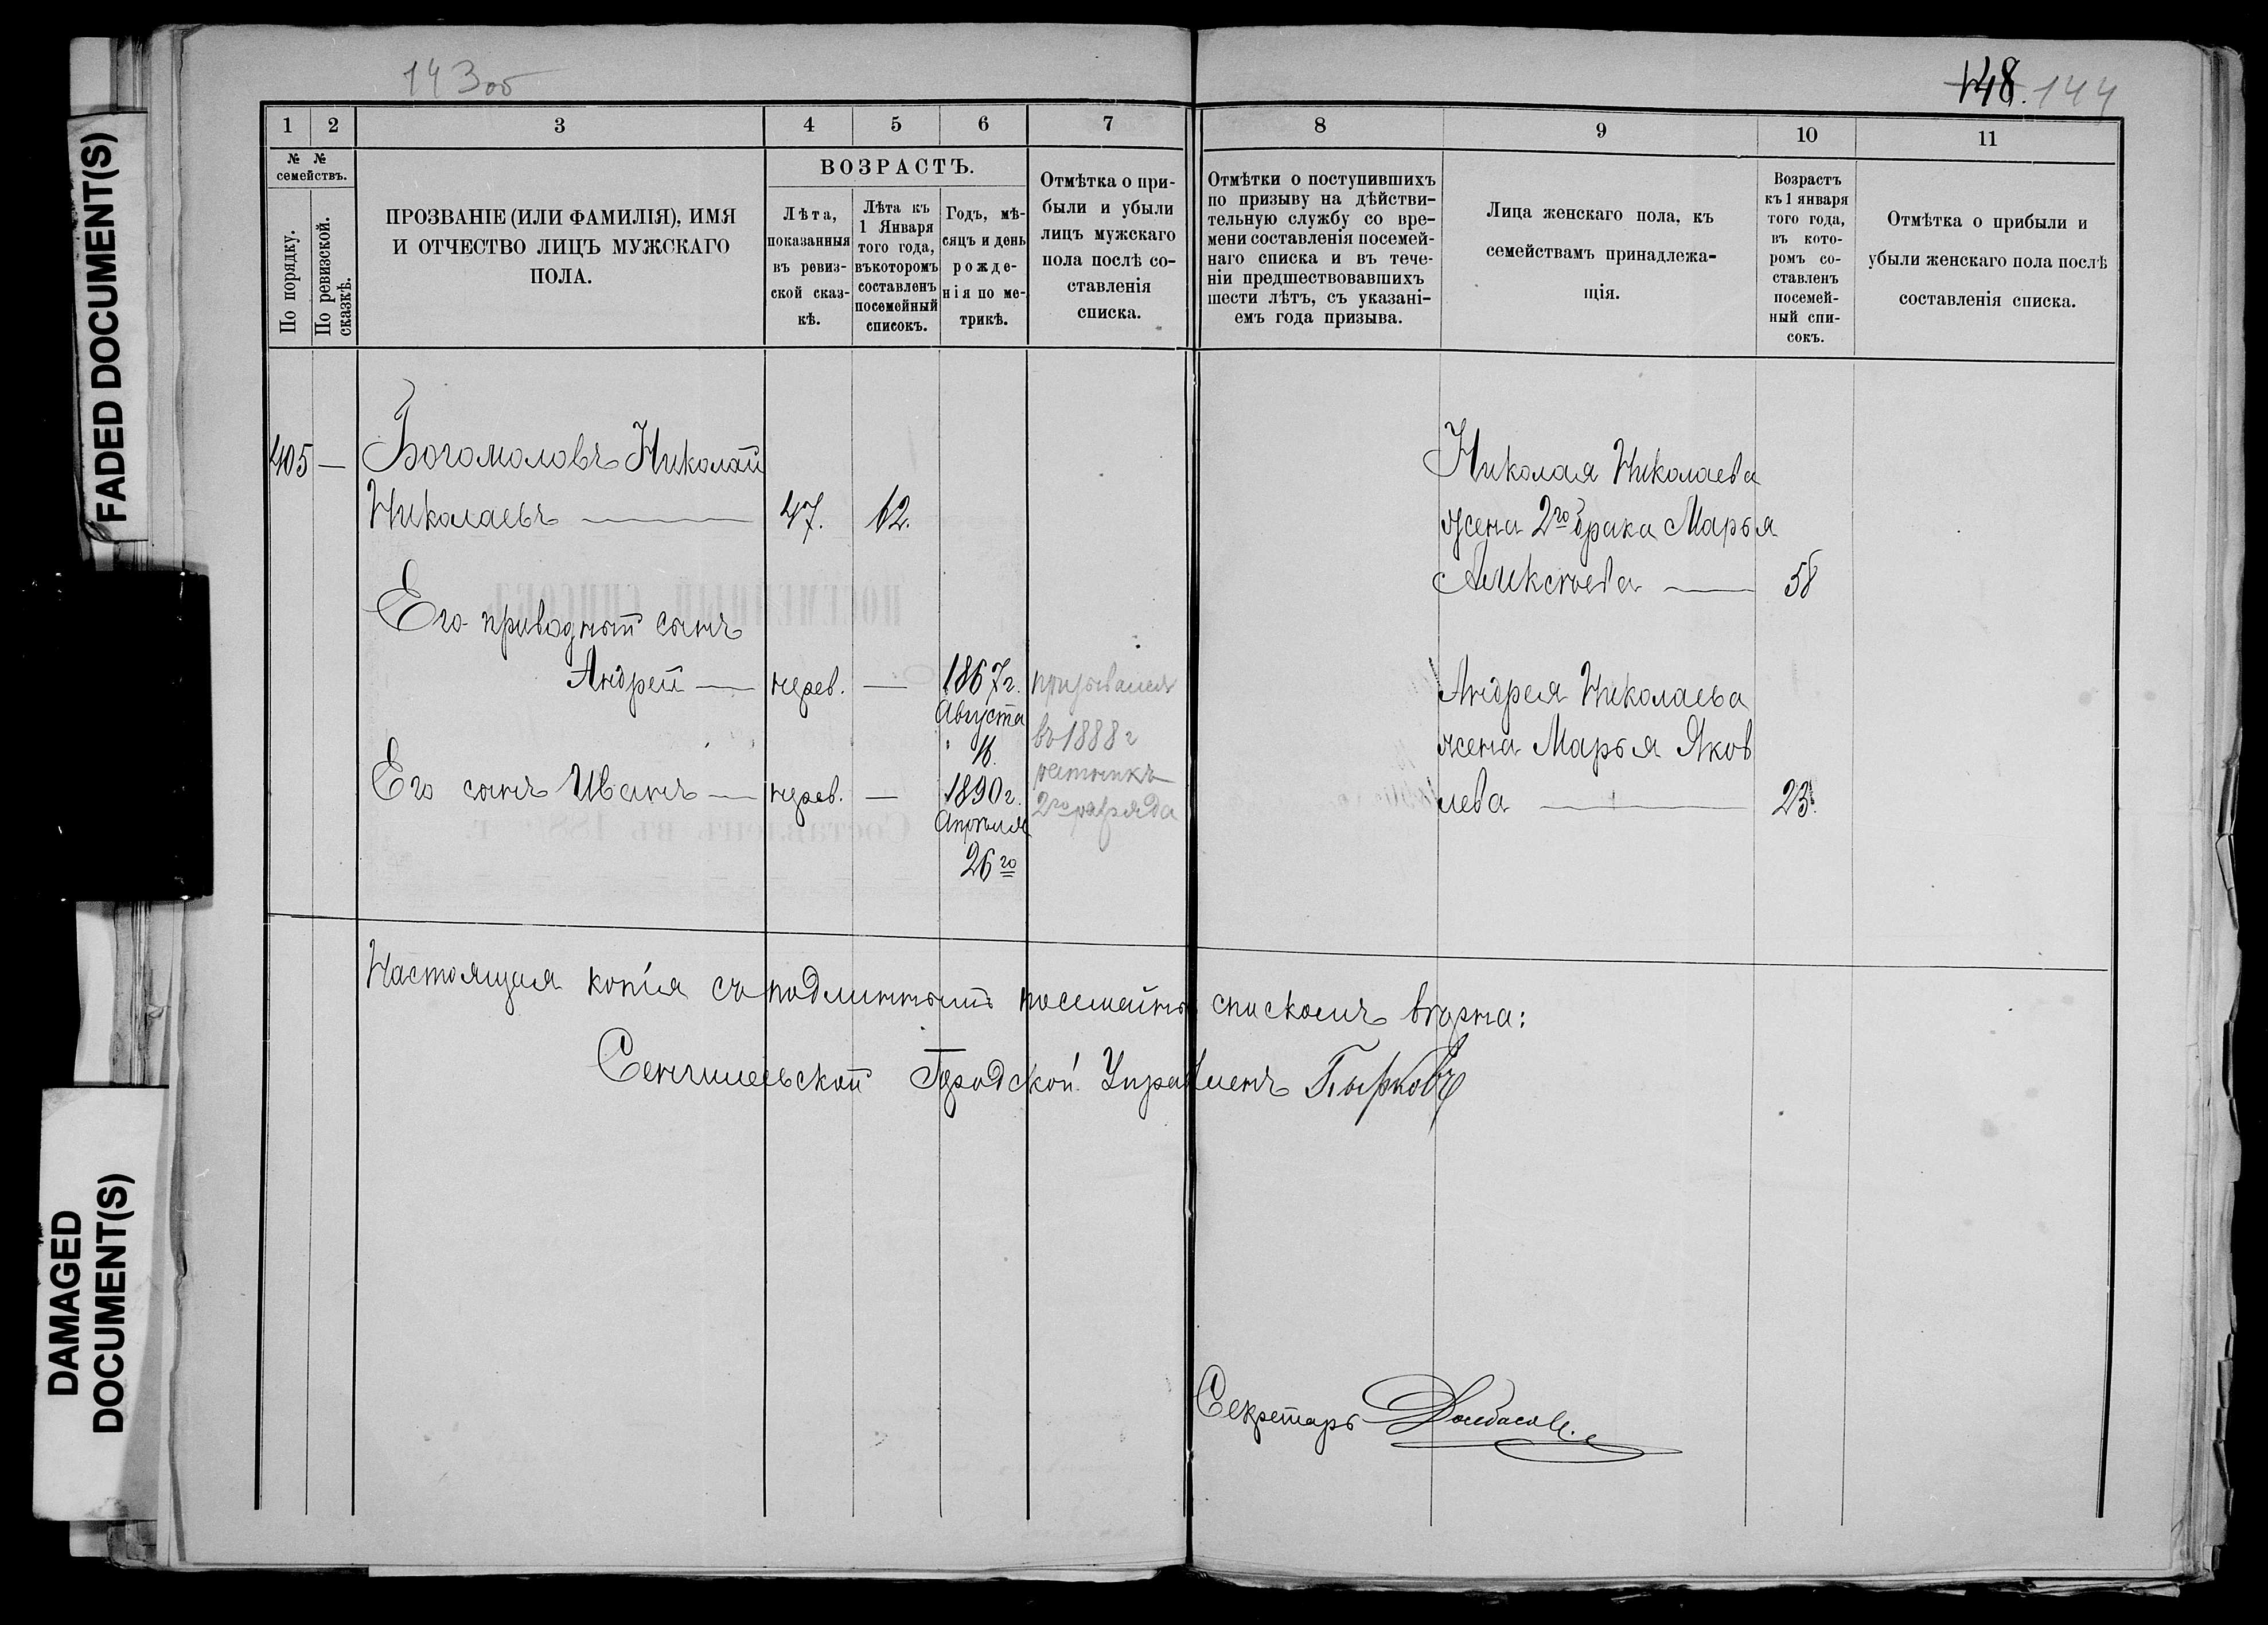 143об
148. 144
FADED DOCUMENT(S)
DAMAGED
DOCUMENT(S)
1 2 3 4 5 6 7 8 9 10 11
№ №
семействъ.
По порядку.
По ревизской
сказкѣ.
ПРОЗВАНІЕ (ИЛИ ФАМИЛІЯ), ИМЯ
И ОТЧЕСТВО ЛИЦЪ МУЖСКАГО
ПОЛА.
ВОЗРАСТЪ.
Лѣта,
показанныя
въ ревиз-
ской сказ-
кѣ.
Лѣта къ
1 Января
того года,
въ которомъ
составленъ
посемейный
списокъ.
Годъ, мѣ-
сяцъ и день
рожде-
нія по ме-
трикѣ.
Отмѣтка о при-
были и убыли
лицъ мужскаго
пола послѣ со-
ставленія
списка.
Отмѣтки о поступившихъ
по призыву на дѣйстви-
тельную службу со вре-
мени составленія посемей-
наго списка и въ тече-
ніи предшествовавшихъ
шести лѣтъ, съ указані-
емъ года призыва.
Лица женскаго пола, къ
семействамъ принадлежа-
щія.
Возрастъ
къ 1 января
того года,
въ кото-
ромъ со-
ставленъ
посемей-
ный спи-
сокъ.
Отмѣтка о прибыли и
убыли женскаго пола послѣ
составленія списка.
405 — Богомоловъ Николай
Николаевъ — 47. 62.
Его приводный сынъ
Андрей — нерев. — 1867 г.
Августа
16.
призывался
въ 1888 г
ратникъ
2го разряда
Его сынъ Иванъ — нерев. — 1890 г.
Апрѣля
26го
Николая Николаева
жена 2го брака Марья
Алексѣева — 58
Андрея Николаева
жена Марья Яков
лева — 23.
Настоящая копія съ подлиннымъ посемейны спискомъ вѣрна:
Сенгилеьской Городской Управ Членъ Пырковъ
Секретарь